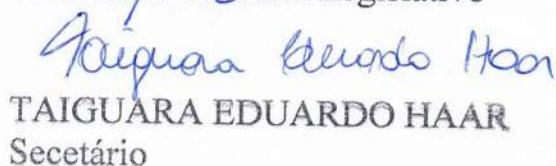 Taiguara Eduardo Haar
TAIGUARA EDUARDO HAAR
Secetário